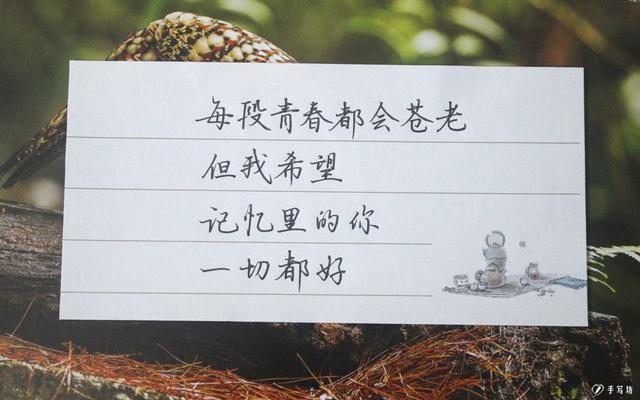 每段青春都会苍老
但我希望
记忆里的你
一切都好
手写坊